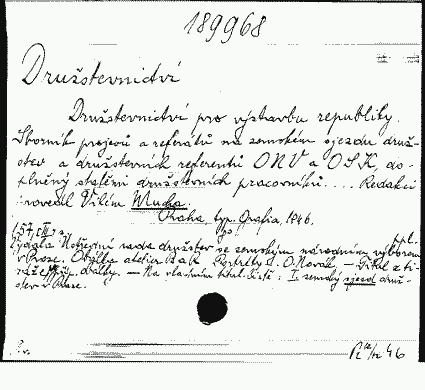 189968
Družstevnictví
Družstevnictví pro výstavbu republiky.
Sborník projevů a referátů na zemském sjezdu druž-
stev a družstevních referentů ONV a OSK, do-
plněný statěmi družstevních pracovníků.... Redakci
provedl Vilém Mucha.
Praha, typ. Grafia, 1946.
157, III s. 8°. ppl.
Vydala Ústřední rada družstev se zemským národním výborem
v Praze. Obálka atelier B a K. O. Novák. — Titul z ti-
ráže obálky. — Na vlastním titul. listě: I. zemský sjezd druž-
stev v Praze.
46